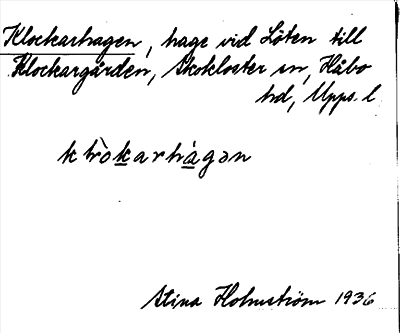 Klockarhagen, hage vid Löten till
Klockargården, Skokloster sn, Håbo
hd, Upps. l.
klòkarhàgən
Stina Holmström 1936